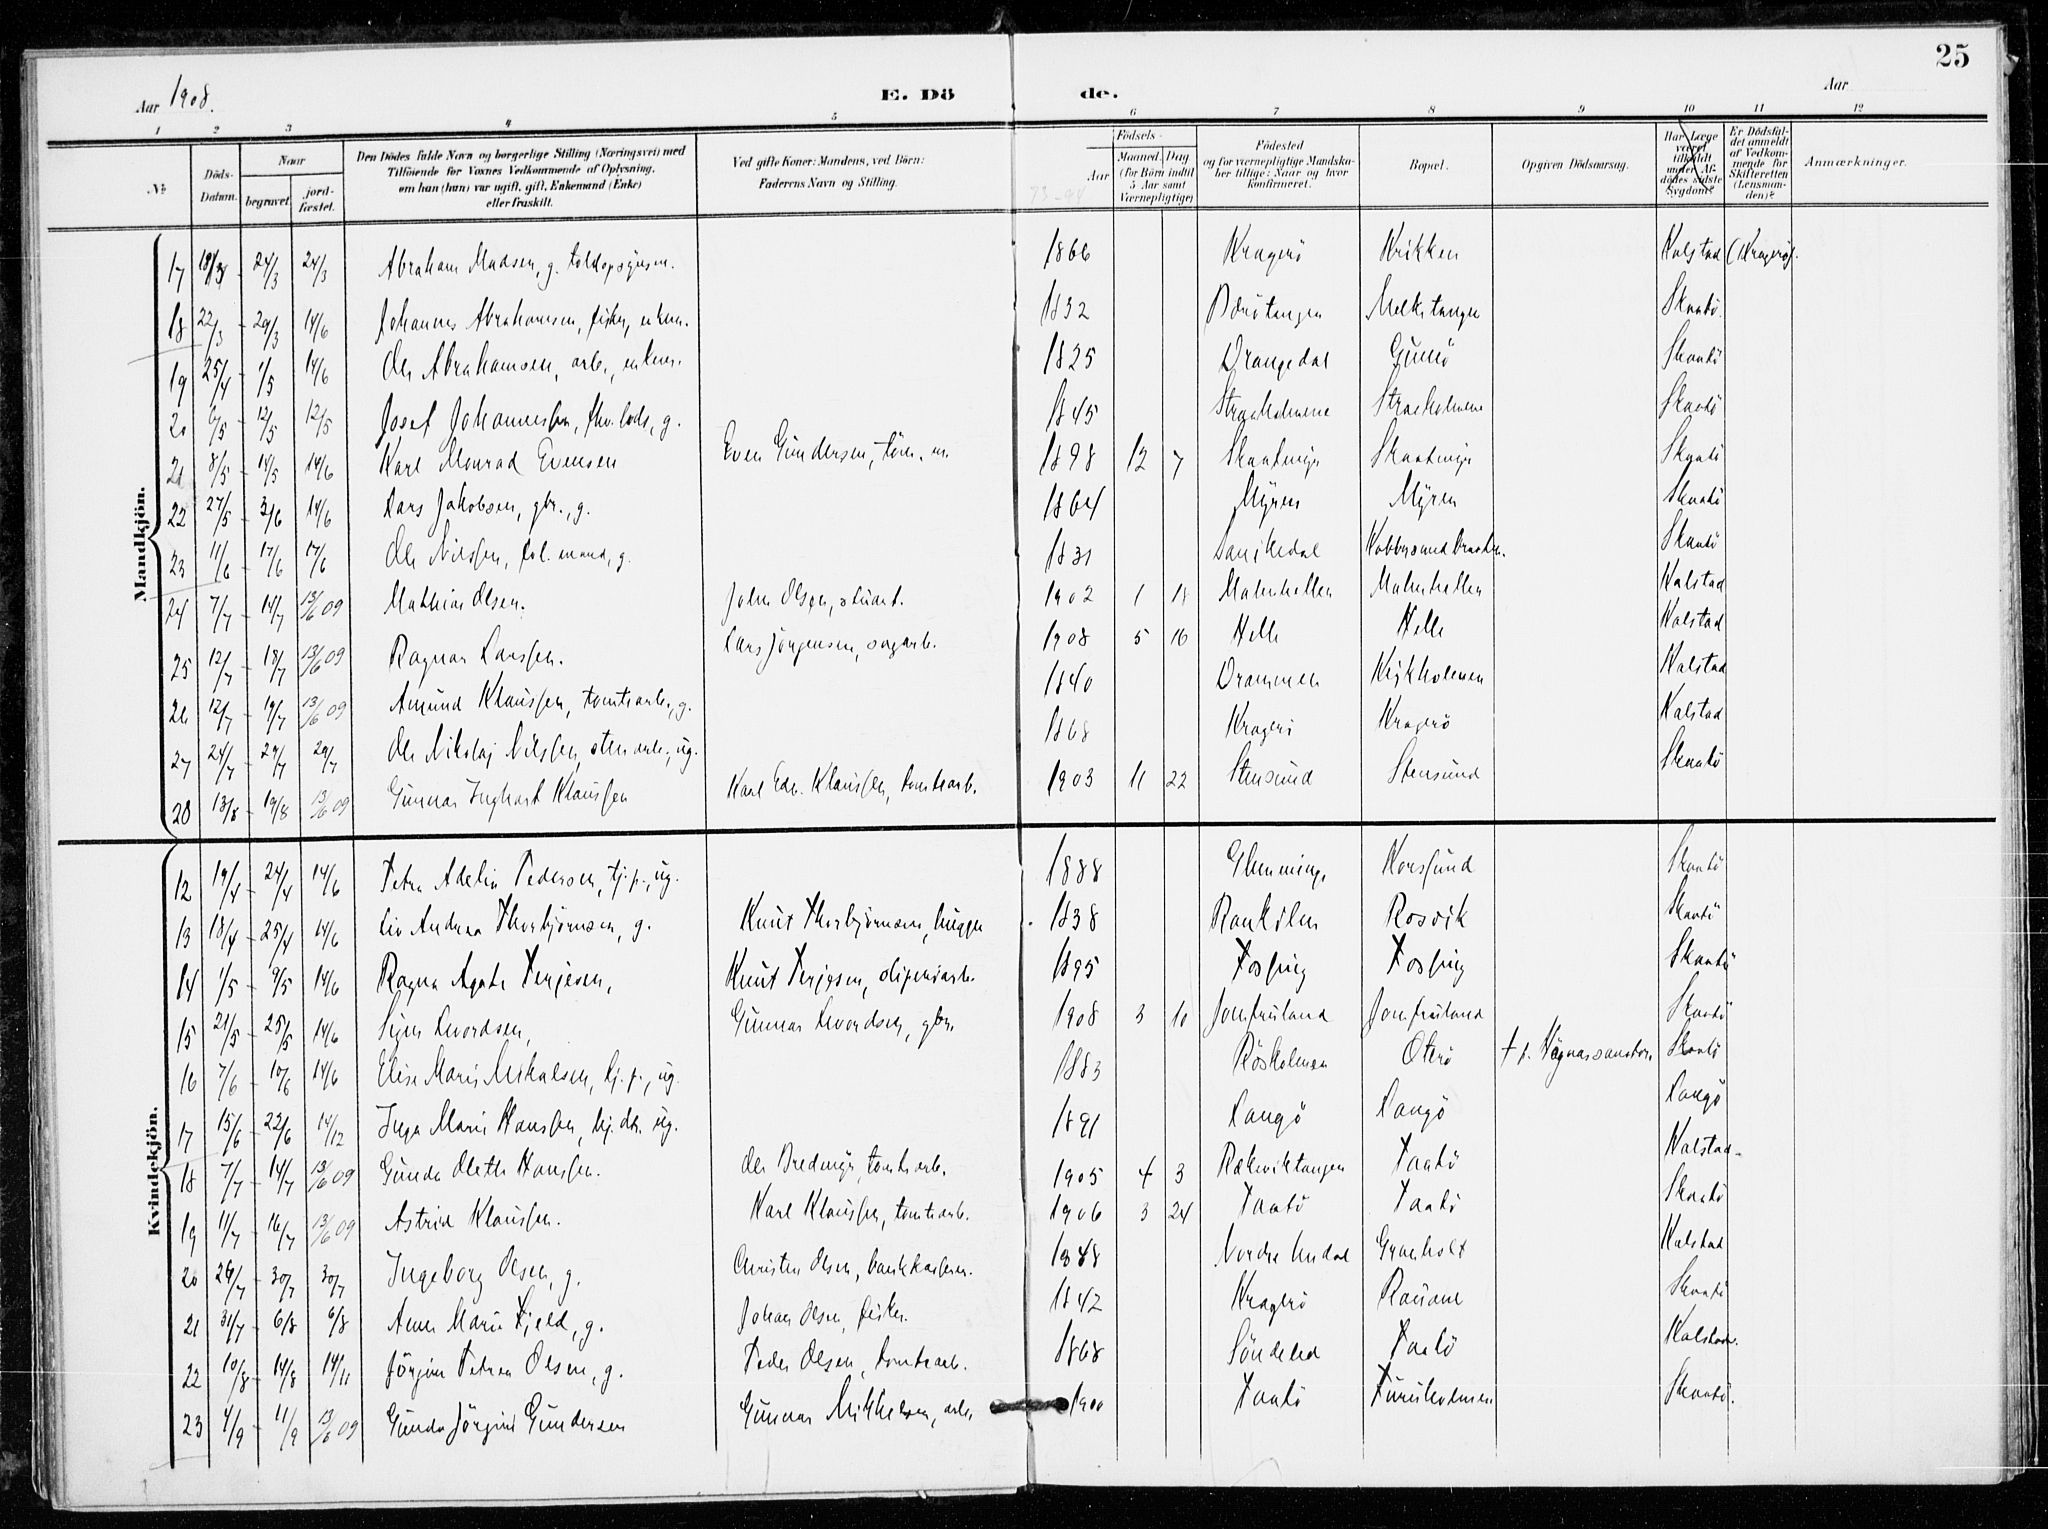 25
Aar 1908. E. Dö de. Aar
1 2 3 4 5 6 7 8 9 10 11 12
№ Döds-Datum. Naar begravet. jord-fæstet. Den Dödes fulde Navn og borgerlige Stilling (Næringsvei) med Tilföiende for Voxnes Vedkommende af Oplysning, om han (hun) var ugift, gift, Enkemand (Enke) eller fraskilt. Ved gifte Koner: Mandens, ved Börn: Faderens Navn og Stilling. Födsels- Aar Maaned. Dag (for Börn indtil 5 Aar samt Værnepligtige) Födested og for værnepligtige Mandskaber tillige: Naar og hvor konfirmeret. Bopæl. Opgiven Dödsaarsag. Har Læge været tilkaldt under Afdödes sidste Sygdom? Er Dödsfaldet anmeldt af Vedkommende for Skifteretten (Lensmanden)? Anmærkninger.
73-94
Mandkjön.
17 18/3 - 24/3 24/3 Abraham Madsen, g. toldopsynsm. 1866 Kragerö Krikken Kalstad (Kragerö).
18 22/3 - 29/3 14/6 Johannes Abrahamsen, fisker, enkem. 1832 Börötangen Melkstangen Skaatö.
19 25/4 - 1/5 14/6 Ole Abrahamsen, arb., enkem. 1825 Drangedal Gumö Skaatö
20 6/5 - 12/5 12/5 Josef Johannessen, fhv. lods, g. 1845 Straaholmene Straaholmene Skaatö
21 8/5 - 14/5 14/6 Karl Monrad Evensen Even Gundersen, töm. m. 1898 12 7 Skaatmyr Skaatmyr Skaatö
22 27/5 - 3/6 14/6 Lars Jakobsen, gbr., g. 1864 Myren Myren Skaatö
23 11/6 - 17/6 17/6 Ole Nilssen, fol. mand, g. 1831 Sanikedal Skaatö
24 7/7 - 14/7 13/6 09 Mathias Olsen. John Olsen, stuert. 1902 1 18 Malmhellen Malmhellen Kalstad
25 12/7 - 18/7 13/6 09 Ragnar Larssen. Lars Jörgensen, sagarb. 1908 5 16 Helle Helle Kalstad
26 12/7 - 19/7 13/6 09 Amund Klaussen, tomtearb., g. 1840 Drammen Kirkholmen Kalstad
27 24/7 - 29/7 29/7 Ole Nikolaj Nilssen, stenarb., ug. 1868 Kragerö Kragerö Kalstad
28 13/8 - 19/8 13/6 09 Gunnar Inghart Klaussen Karl Edv. Klaussen, tomtearb. 1903 11 22 Stensund Stensund Skaatö
Kvindekjön.
12 19/4 - 24/4 14/6 Petra Adelia Pedersen, tj.p., ug. 1888 Glemminge Korssund Skaatö
13 18/4 - 25/4 14/6 Liv Andrea Thorbjörnsen, g. Knut Thorbjörnsen, hugger 1838 Rosvik Skaatö
14 1/5 - 9/5 14/6 Ragna Agate Terjesen, Knut Terjesen, sliperiarb. 1895 Fossing Fossing Skaatö
15 21/5 - 25/5 14/6 Signe Sivordsen, Gunnar Sivordsen, gbr. 1908 3 10 Jomfruland Jomfruland Skaatö
16 7/6 - 10/6 14/6 Elise Marie Mikalsen, tj.p., ug. 1883 Röskolmen Oterö † p. Vögnessanator. Skaatö
17 15/6 - 22/6 14/12 Inga Marie Hanssen, hj. dtr. ug. 1891 Langö Langö Langö
18 7/7 - 14/7 13/6 09 Gunda Olette Hanssen. Ole Bredmyr, tomtearb. 1905 4 3 Rækeviktangen Taatö Kalstad.
19 11/7 - 16/7 13/6 09 Astrid Klaussen. Karl Klaussen, tomtearb. 1906 3 24 Taatö Taatö Skaatö
20 26/7 - 30/7 30/7 Ingeborg Olsen, g. Christen Olsen, bankkasserer. 1848 Nordre Undal Graaholt Kalstad
21 31/7 - 6/8 6/8 Anne Marie Fjeld, g. Johan Olsen, fisker. 1842 Kragerö Rauane Skaatö
22 10/8 - 14/8 14/11 Jörgine Petrea Olsen, g. Peder Olsen, tomtearb. 1868 Söndeled Taatö Kalstad.
23 4/9 - 11/9 13/6 09 Gunda Jörgine Gundersen Gunnar Mikkelsen, arb. 1900 Taatö Furuholmen Skaatö.